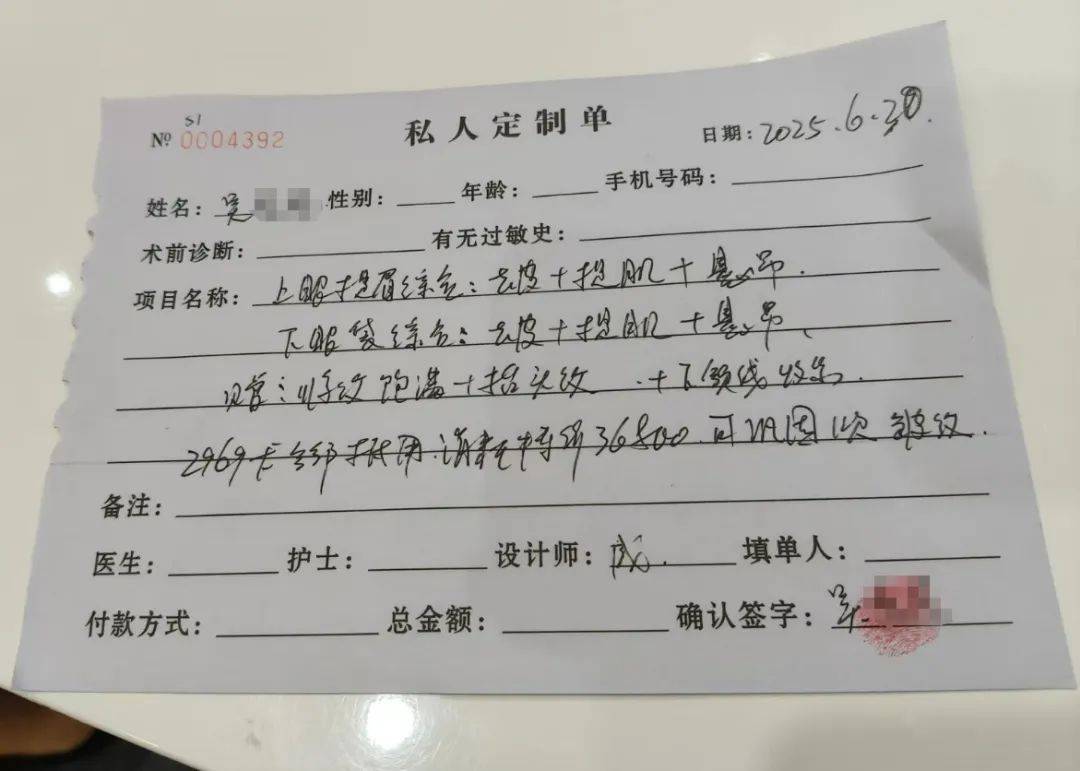 S1
№ 0004392
私人定制单
日期：2025.6.30.
姓名：吴 性别： 年龄： 手机号码：
术前诊断： 有无过敏史：
项目名称：上眼提眉综合：去皮+提肌+悬吊.
下眼袋综合：去皮+提肌+悬吊、
川字纹饱满+抬头纹 +下颌线收紧.
2969卡全部抵用.消费 36800.可巩固1次 皱纹.
备注：
医生： 护士： 设计师：成. 填单人：
付款方式： 总金额： 确认签字：吴